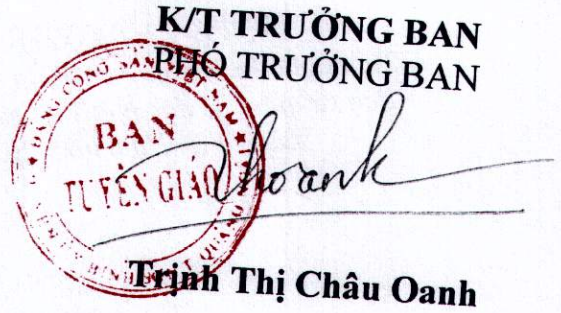 K/T TRƯỞNG BAN
PHÓ TRƯỞNG BAN
ĐẢNG CỘNG SẢN VIỆT NAM
BAN
TUYÊN GIÁO
Trịnh Thị Châu Oanh